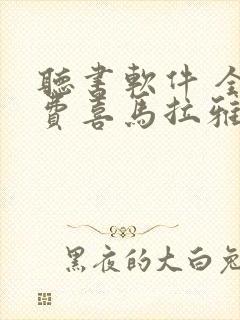 聽書軟件 全
費喜馬拉雅
黑夜的大白兔